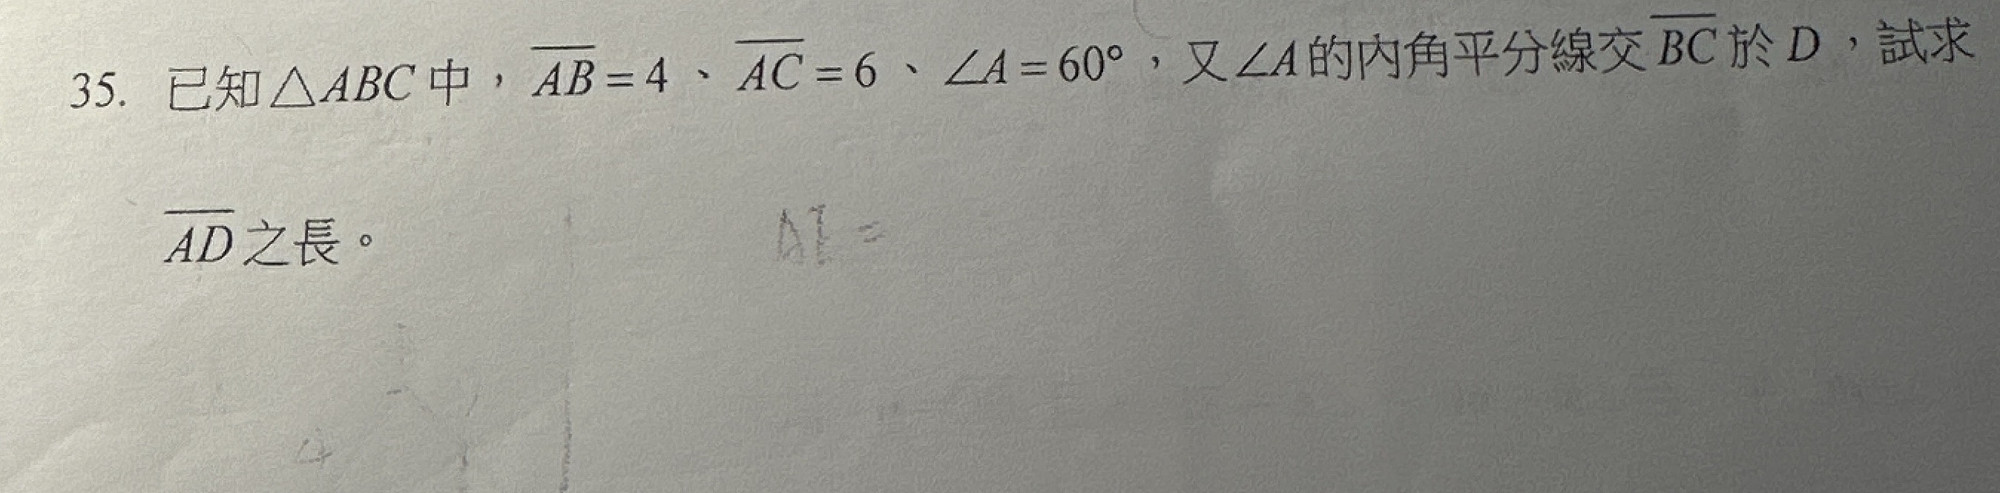 35. 已知△ABC中，AB=4、AC=6、∠A=60°，又∠A的內角平分線交BC於D，試求
AD之長。